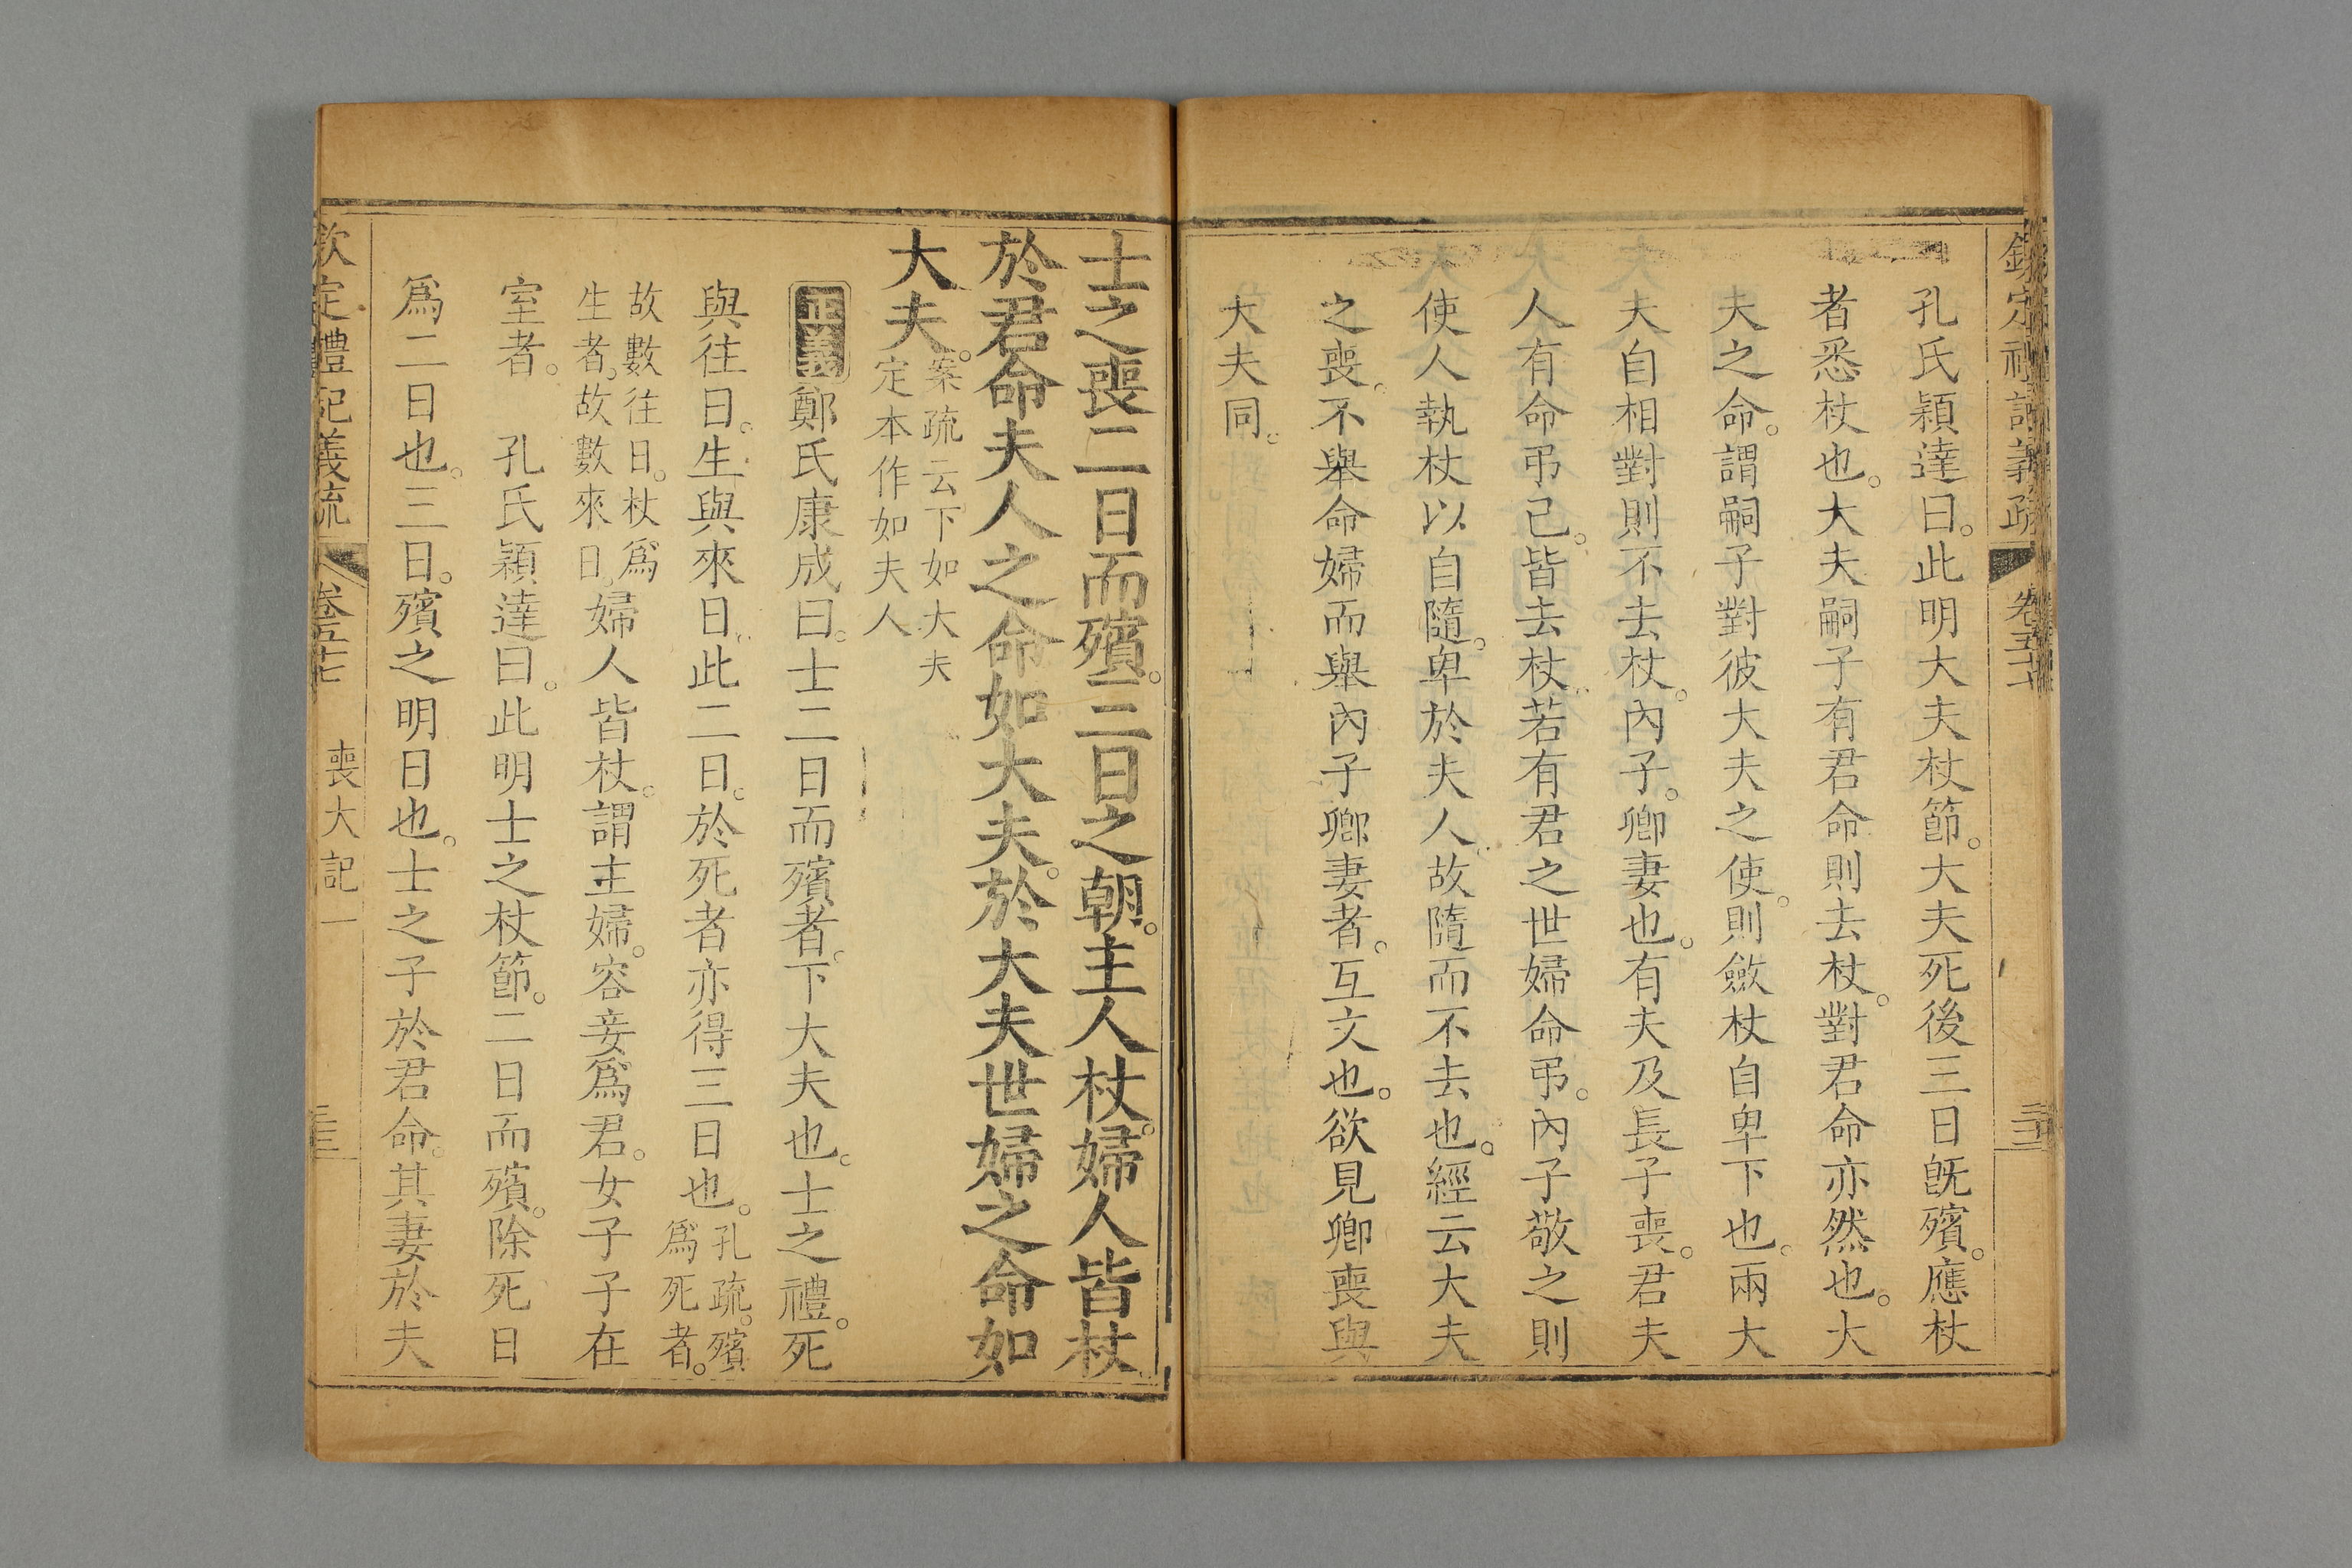 欽定禮記義疏 卷五十七
孔氏穎達曰。此明大夫杖節。大夫死後三日旣殯。應杖
者悉杖也。大夫嗣子有君命則去杖。對君命亦然也。大
夫之命。謂嗣子對彼大夫之使。則斂杖自卑下也。兩大
夫自相對則不去杖。內子。卿妻也。有夫及長子喪。君夫
人有命弔己。皆去杖。若有君之世婦命弔。內子敬之則
使人執杖以自隨。卑於夫人。故隨而不去也。經云大夫
之喪。不舉命婦而舉內子卿妻者。互文也。欲見卿喪與
大夫同。
士之喪二日而殯。三日之朝。主人杖。婦人皆杖。
於君命夫人之命如大夫。於大夫世婦之命如
大夫。案疏云。下如大夫
定本作如夫人
正義 鄭氏康成曰。士二日而殯者。下大夫也。士之禮。死
與往日。生與來日。此二日。於死者亦得三日也。孔疏。殯
爲死者。
故數往日。杖爲
生者。故數來日。婦人皆杖。謂主婦。容妾爲君。女子子在
室者。 孔氏穎達曰。此明士之杖節。二日而殯。除死日
爲二日也。三日。殯之明日也。士之子於君命。其妻於夫
欽定禮記義疏 卷五十七 喪大記一